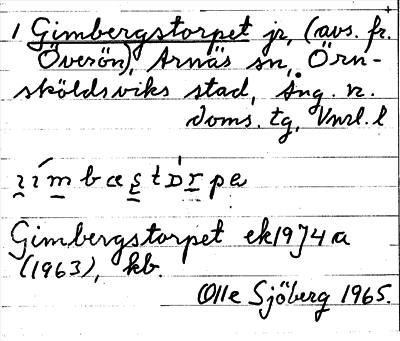 1 Gimbergstorpet jr, (avs. fr.
Överön), Arnäs sn, Örn-
sköldsviks stad, Ång. n.
doms. tg, Vnrl. l
Gimbergstorpet ek 1974 a
(1963), kb.
Olle Sjöberg 1965.